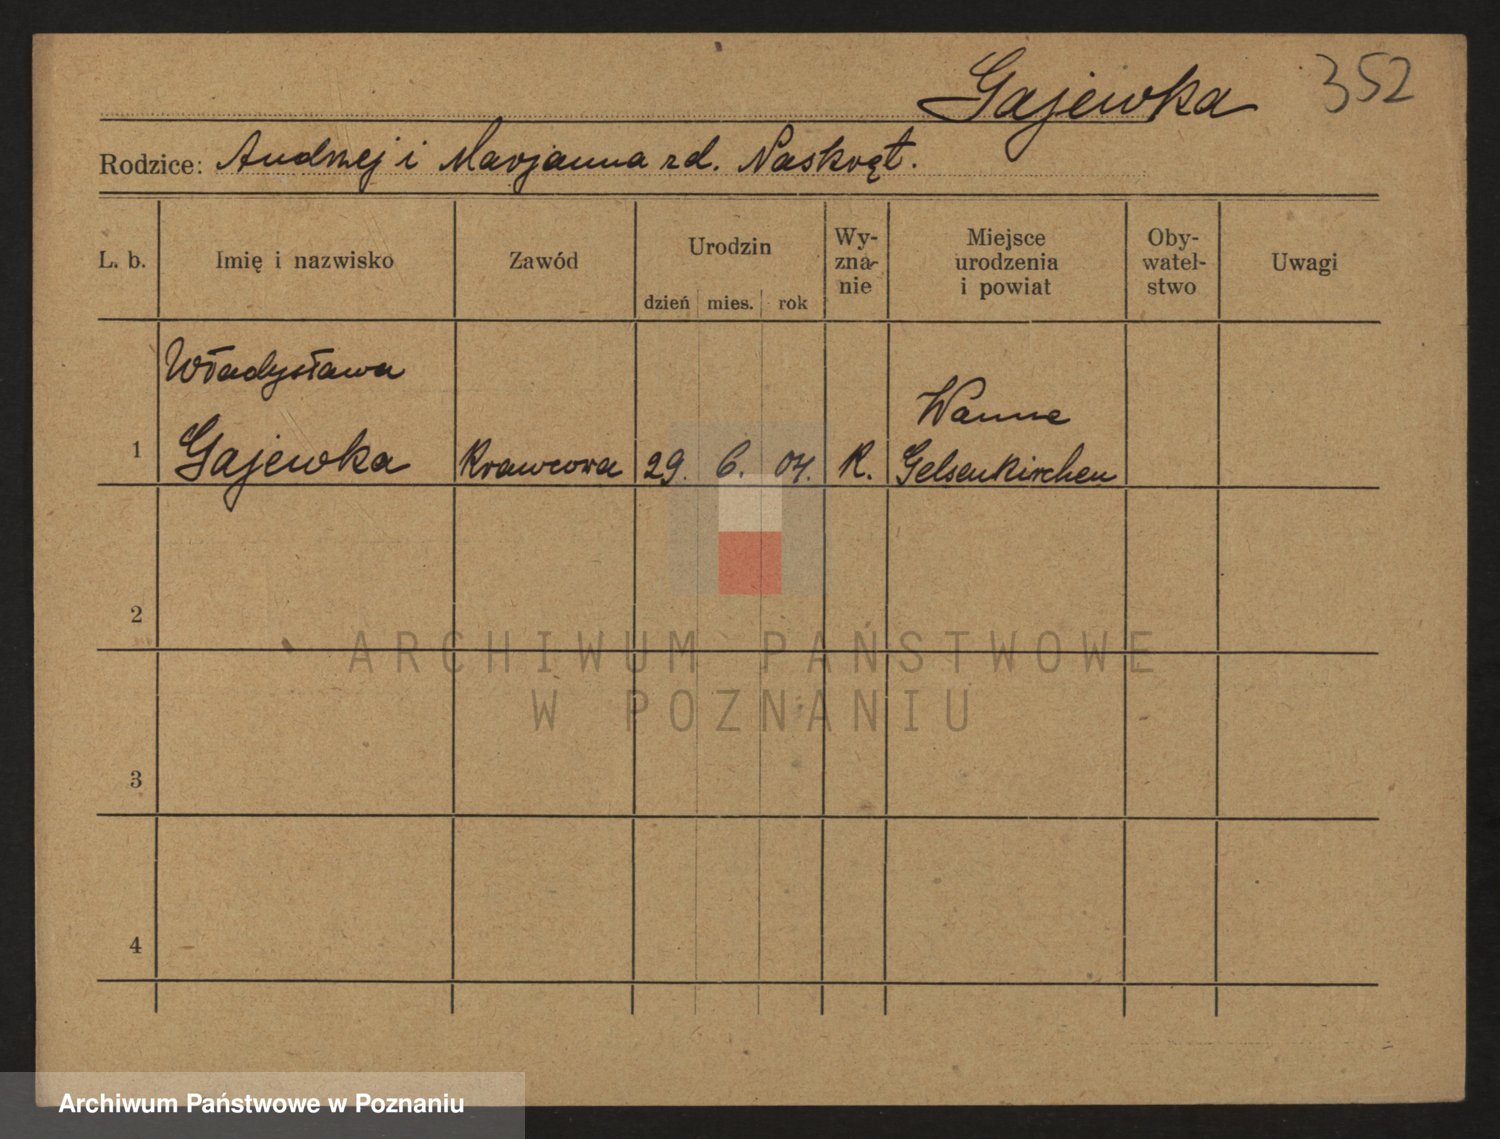 Gajewka 352
Rodzice: Andrzej i Marjanna zd. Naskręt.
L. b. Imię i nazwisko Zawód Urodzin dzień mies. rok Wy-zna-nie Miejsce urodzenia i powiat Oby-watel-stwo Uwagi
Władysława
Wanne
1 Gajewka Krawcowa 29. 6. 04. K. Gelsenkirchen
2
ARCHIWUM PAŃSTWOWE
W POZNANIU
3
4
Archiwum Państwowe w Poznaniu